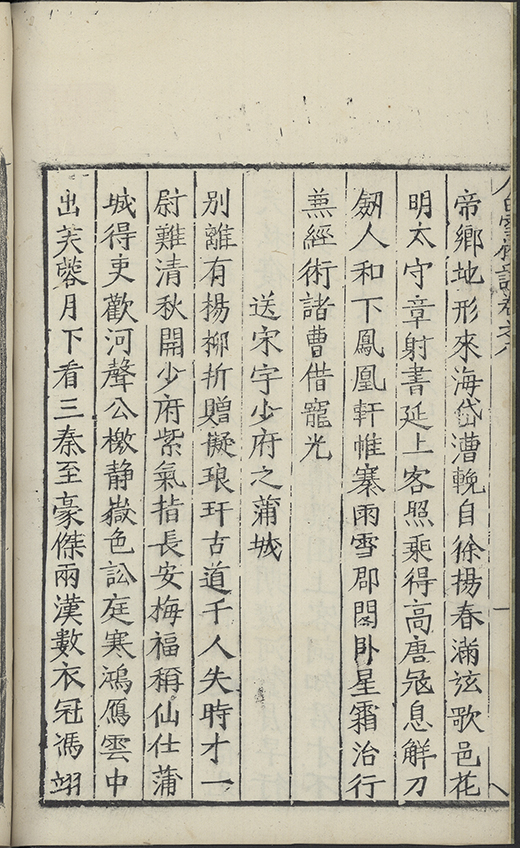 帝鄉地形來海岱漕輓自徐揚春滿弦歌邑花
明太守章射書延上客照乘得高唐寇息解刀
劒人和下鳳凰軒帷褰雨雪郡閣卧星霜治行
蕪經術諸曹借寵光
送宋字少府之蒲城
別離有楊柳折贈擬琅玕古道千人失時才一
尉難清秋開少府紫氣指長安梅福稱仙仕蒲
城得吏歡河聲公檄静嶽色訟庭寒鴻鴈雲中
出芙蓉月下看三秦至豪傑兩漢數衣冠馮翊